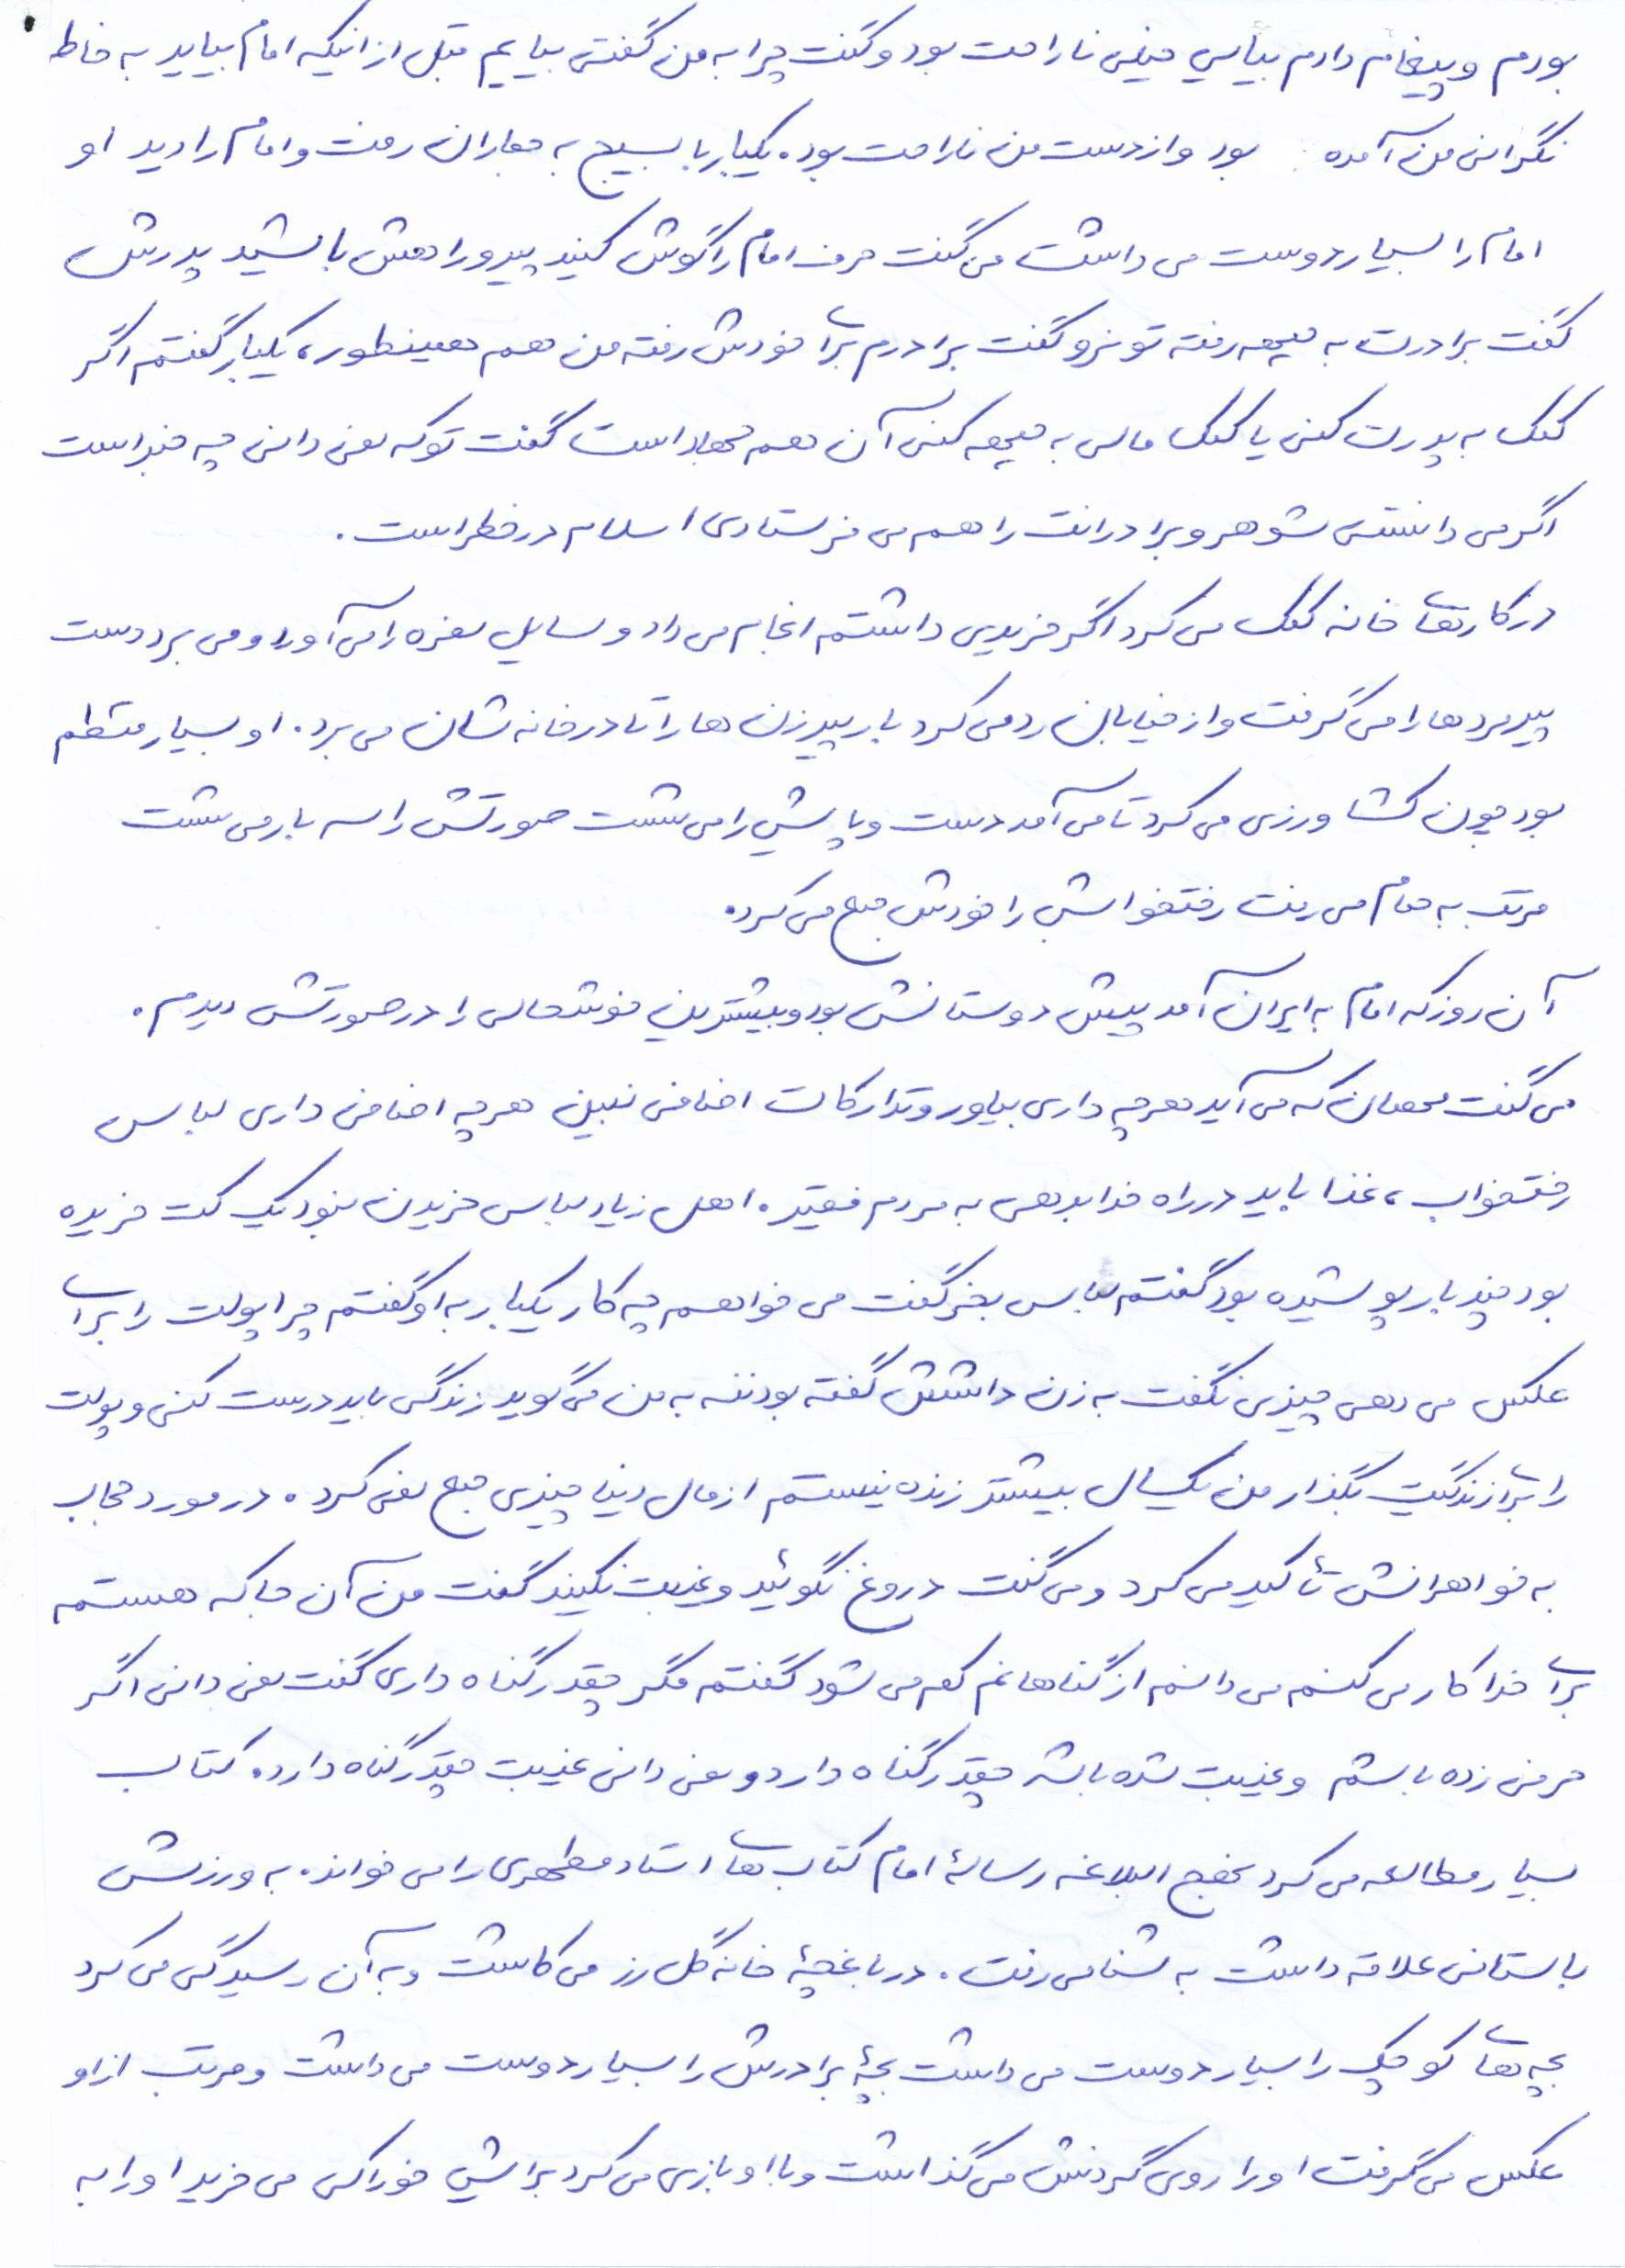 بودم و پیغام دادم بیایی خیلی ناراحت بود و گفت چرا به من گفتی بیایم قبل از اینکه امام بیاید به خاطر
نگرانی من آمده بود و از دست من ناراحت بود. یکبار با بسیج به جماران رفت و امام را دید او
امام را بسیار دوست می داشت می گفت حرف امام را گوش کنید پیرو راهش باشید پدرش
گفت برادرت به جبهه رفته تو نرو گفت برادرم برای خودش رفته من هم همینطور، یکبار گفتم اگر
کمک به پدرت کنی یا کمک مالی به جبهه کنی آن هم جهاد است گفت تو که نمی دانی چه خبر است
اگر می دانستی شوهر و برادرانت را هم می فرستادی اسلام در خطر است.
در کارهای خانه کمک می کرد اگر خریدی داشتم انجام می داد وسایل سفره را می آورد و می برد دست
پیرمردها را می گرفت و از خیابان رد می کرد بار پیرزن ها را تا در خانه شان می برد. او بسیار منظم
بود چون کشاورزی می کرد تا می آمد دست و پایش را می شست صورتش را سه بار می شست
مرتب به حمام می رفت رختخوابش را خودش جمع می کرد.
آن روز که امام به ایران آمد پیش دوستانش بود و بیشترین خوشحالی را در صورتش دیدم.
می گفت مهمان که می آید هرچه داری بیاور و تدارکات اضافی نبین هرچه اضافی داری لباس
رختخواب، غذا باید در راه خدا بدهی به مردم فقیر. اهل زیاد لباس خریدن نبود یک کت خریده
بود چند بار پوشیده بود گفتم لباس بخر گفت می خواهم چه کار یکبار به او گفتم چرا پولت را برای
عکس می دهی چیزی نگفت به زن داشش گفته بود ننه به من می گوید زندگی باید درست کنی و پولت
را برای زندگیت بگذار من یکسال بیشتر زنده نیستم از مال دنیا چیزی جمع نمی کرد. در مورد حجاب
به خواهرانش تأکید می کرد و می گفت دروغ نگوئید و غیبت نکنید گفت من آن جا که هستم
برای خدا کار می کنم می دانم از گناهانم کم می شود گفتم مگر چقدر گناه داری گفت نمی دانی اگر
حرفی زده باشم و غیبت شده باشد چقدر گناه دارد و نمی دانی غیبت چقدر گناه دارد. کتاب
بسیار مطالعه می کرد نهج البلاغه رسالهٔ امام کتاب های استاد مطهری را می خواند. به ورزش
باستانی علاقه داشت به شنا می رفت. در باغچهٔ خانه گل رز می کاشت و به آن رسیدگی می کرد
بچه های کوچک را بسیار دوست می داشت بچهٔ برادرش را بسیار دوست می داشت و مرتب از او
عکس می گرفت او را روی گردنش می گذاشت و با او بازی می کرد برایش خوراکی می خرید او را به